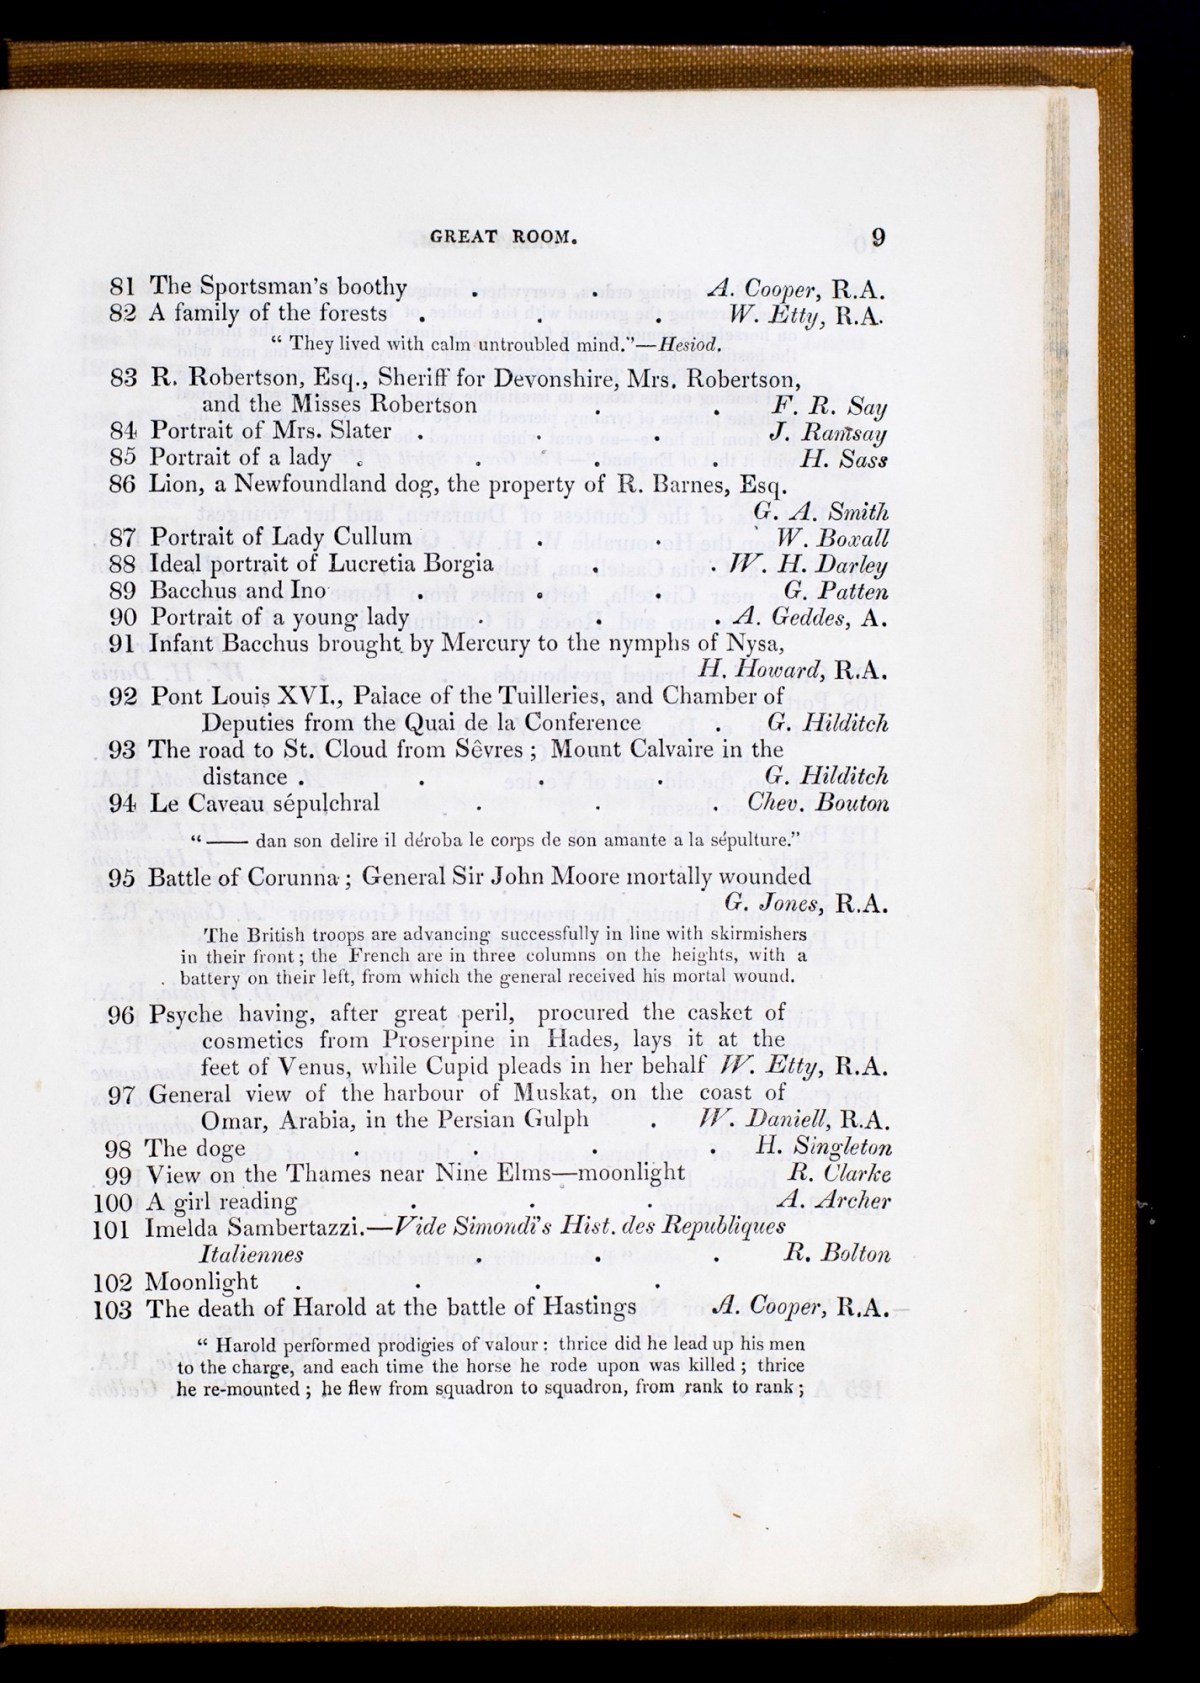 GREAT ROOM. 9
81 The Sportsman's boothy . . A. Cooper, R.A.
82 A family of the forests . . . W. Etty, R.A.
“ They lived with calm untroubled mind.”—Hesiod.
83 R. Robertson, Esq., Sheriff for Devonshire, Mrs. Robertson,
and the Misses Robertson . . F. R. Say
84 Portrait of Mrs. Slater . . . J. Ramsay
85 Portrait of a lady . . . . H. Sass
86 Lion, a Newfoundland dog, the property of R. Barnes, Esq.
G. A. Smith
87 Portrait of Lady Cullum . . W. Boxall
88 Ideal portrait of Lucretia Borgia . . W. H. Darley
89 Bacchus and Ino . . . G. Patten
90 Portrait of a young lady . . . A. Geddes, A.
91 Infant Bacchus brought by Mercury to the nymphs of Nysa,
H. Howard, R.A.
92 Pont Louis XVI., Palace of the Tuilleries, and Chamber of
Deputies from the Quai de la Conference . G. Hilditch
93 The road to St. Cloud from Sêvres ; Mount Calvaire in the
distance . . . . G. Hilditch
94 Le Caveau sépulchral . . . Chev. Bouton
“ —— dan son delire il déroba le corps de son amante a la sépulture.”
95 Battle of Corunna ; General Sir John Moore mortally wounded
G. Jones, R.A.
The British troops are advancing successfully in line with skirmishers
in their front ; the French are in three columns on the heights, with a
battery on their left, from which the general received his mortal wound.
96 Psyche having, after great peril, procured the casket of
cosmetics from Proserpine in Hades, lays it at the
feet of Venus, while Cupid pleads in her behalf W. Etty, R.A.
97 General view of the harbour of Muskat, on the coast of
Omar, Arabia, in the Persian Gulph . W. Daniell, R.A.
98 The doge . . . . H. Singleton
99 View on the Thames near Nine Elms—moonlight R. Clarke
100 A girl reading . . . A. Archer
101 Imelda Sambertazzi.—Vide Simondi's Hist. des Republiques
Italiennes . . . R. Bolton
102 Moonlight . . . .
103 The death of Harold at the battle of Hastings A. Cooper, R.A.
“ Harold performed prodigies of valour : thrice did he lead up his men
to the charge, and each time the horse he rode upon was killed ; thrice
he re-mounted ; he flew from squadron to squadron, from rank to rank ;